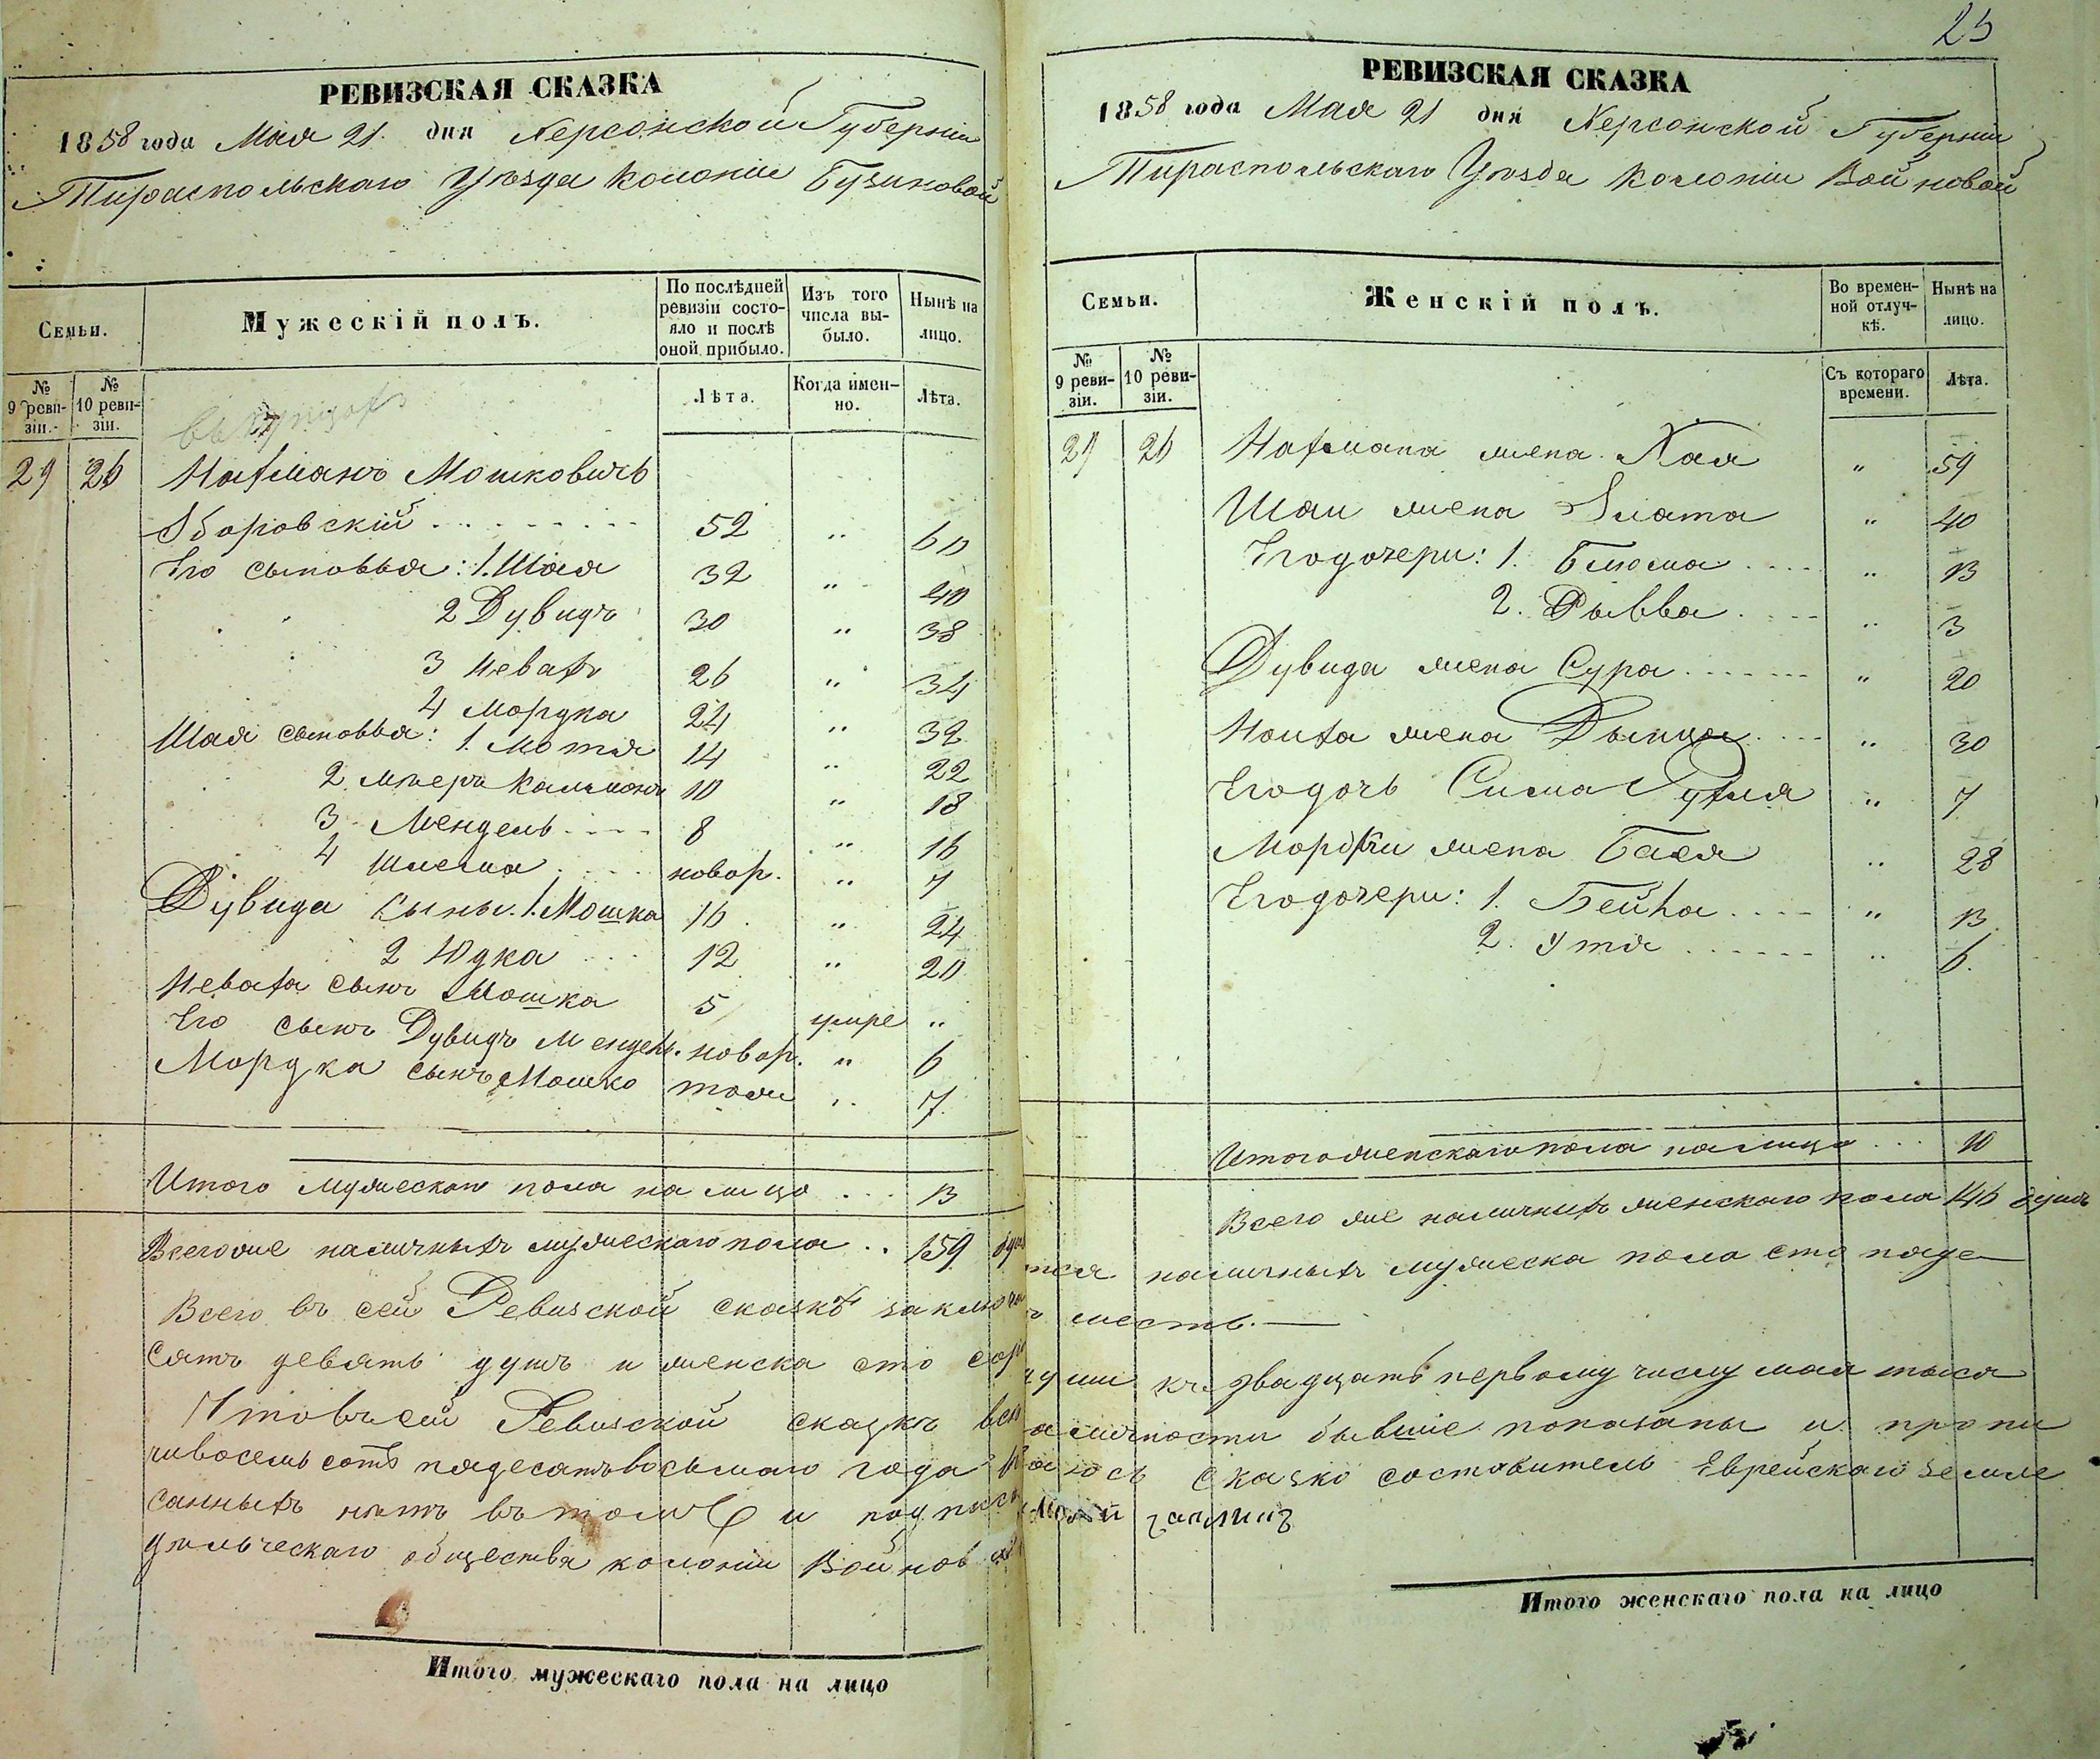 РЕВИЗСКАЯ СКАЗКА
1858 года Мая 21. дня Херсонской Губерніи
Тираспольскаго Уѣзда Колоніи
Семьи.
Мужескій полъ.
По послѣдней ревизіи состояло и послѣ оной прибыло.
Изъ того числа выбыло.
Нынѣ на лицо.
№ 9 ревизіи.
№ 10 ревизіи.
Лѣта.
Когда именно.
Лѣта.
29 26 Нахманъ Мошковичъ
Зборовскій 52 " 60
Его сыновья: 1. Шая 32 " 40
2 Дувидъ 30 " 38
3 26 " 34
4 Мордка 24 " 32
Шая сыновья: 1. Мотя 14 " 22
2. Мѣеръ Кальманъ 10 " 18
3 Мендель 8 " 16
4 Шлема новор. " 7
Дувида сыны. 1. Мошка 16 " 24
2 Юдка 12 " 20
сынъ Мошка 5 умре "
Его сынъ Дувидъ Мендель. новор. " 6
Мордка сынъ Мошко тоже " 7.
Итого мужескаго пола на лицо 13
Всего же наличныхъ мужескаго пола 159 душ
Всего въ сей Ревизской сказкѣ заключа
сятъ девять душъ и женска сто сор
Что въ сей Ревизской сказкѣ всѣ
чивосемь сотъ пядесятъ восьмаго года
санныхъ нѣтъ въ томъ и подписа
дѣльческаго общества колоніи Войнов
Итого мужескаго пола на лицо
25
РЕВИЗСКАЯ СКАЗКА
1858 года Мая 21 дня Херсонской Губерніи
Тираспольскаго Уѣзда Колоніи Войновой
Семьи.
Женскій полъ.
Во временной отлучкѣ.
Нынѣ на лицо.
№ 9 ревизіи.
№ 10 ревизіи.
Съ котораго времени.
Лѣта.
29 26 Нахмана жена Хая " 59
Шаи жена Злата " 40
Его дочери: 1. Блюма " 13
2. Рывва " 3
Дувида жена Сура " 20
жена " 30
Его дочь Сима Рухля " 7
Мордки жена Бася " 28
Его дочери: 1. Бейла " 13
2. Утя " 6.
Итого женскаго пола на лицо 10
Всего же наличныхъ женскаго пола 146 душъ
тся наличныхъ мужеска пола сто пяде
шесть.
души къ двадцать первому числу мая тыся
аличности бывшіе показаны и пропи
ось сказко составитель Еврейскаго земле
Итого женскаго пола на лицо